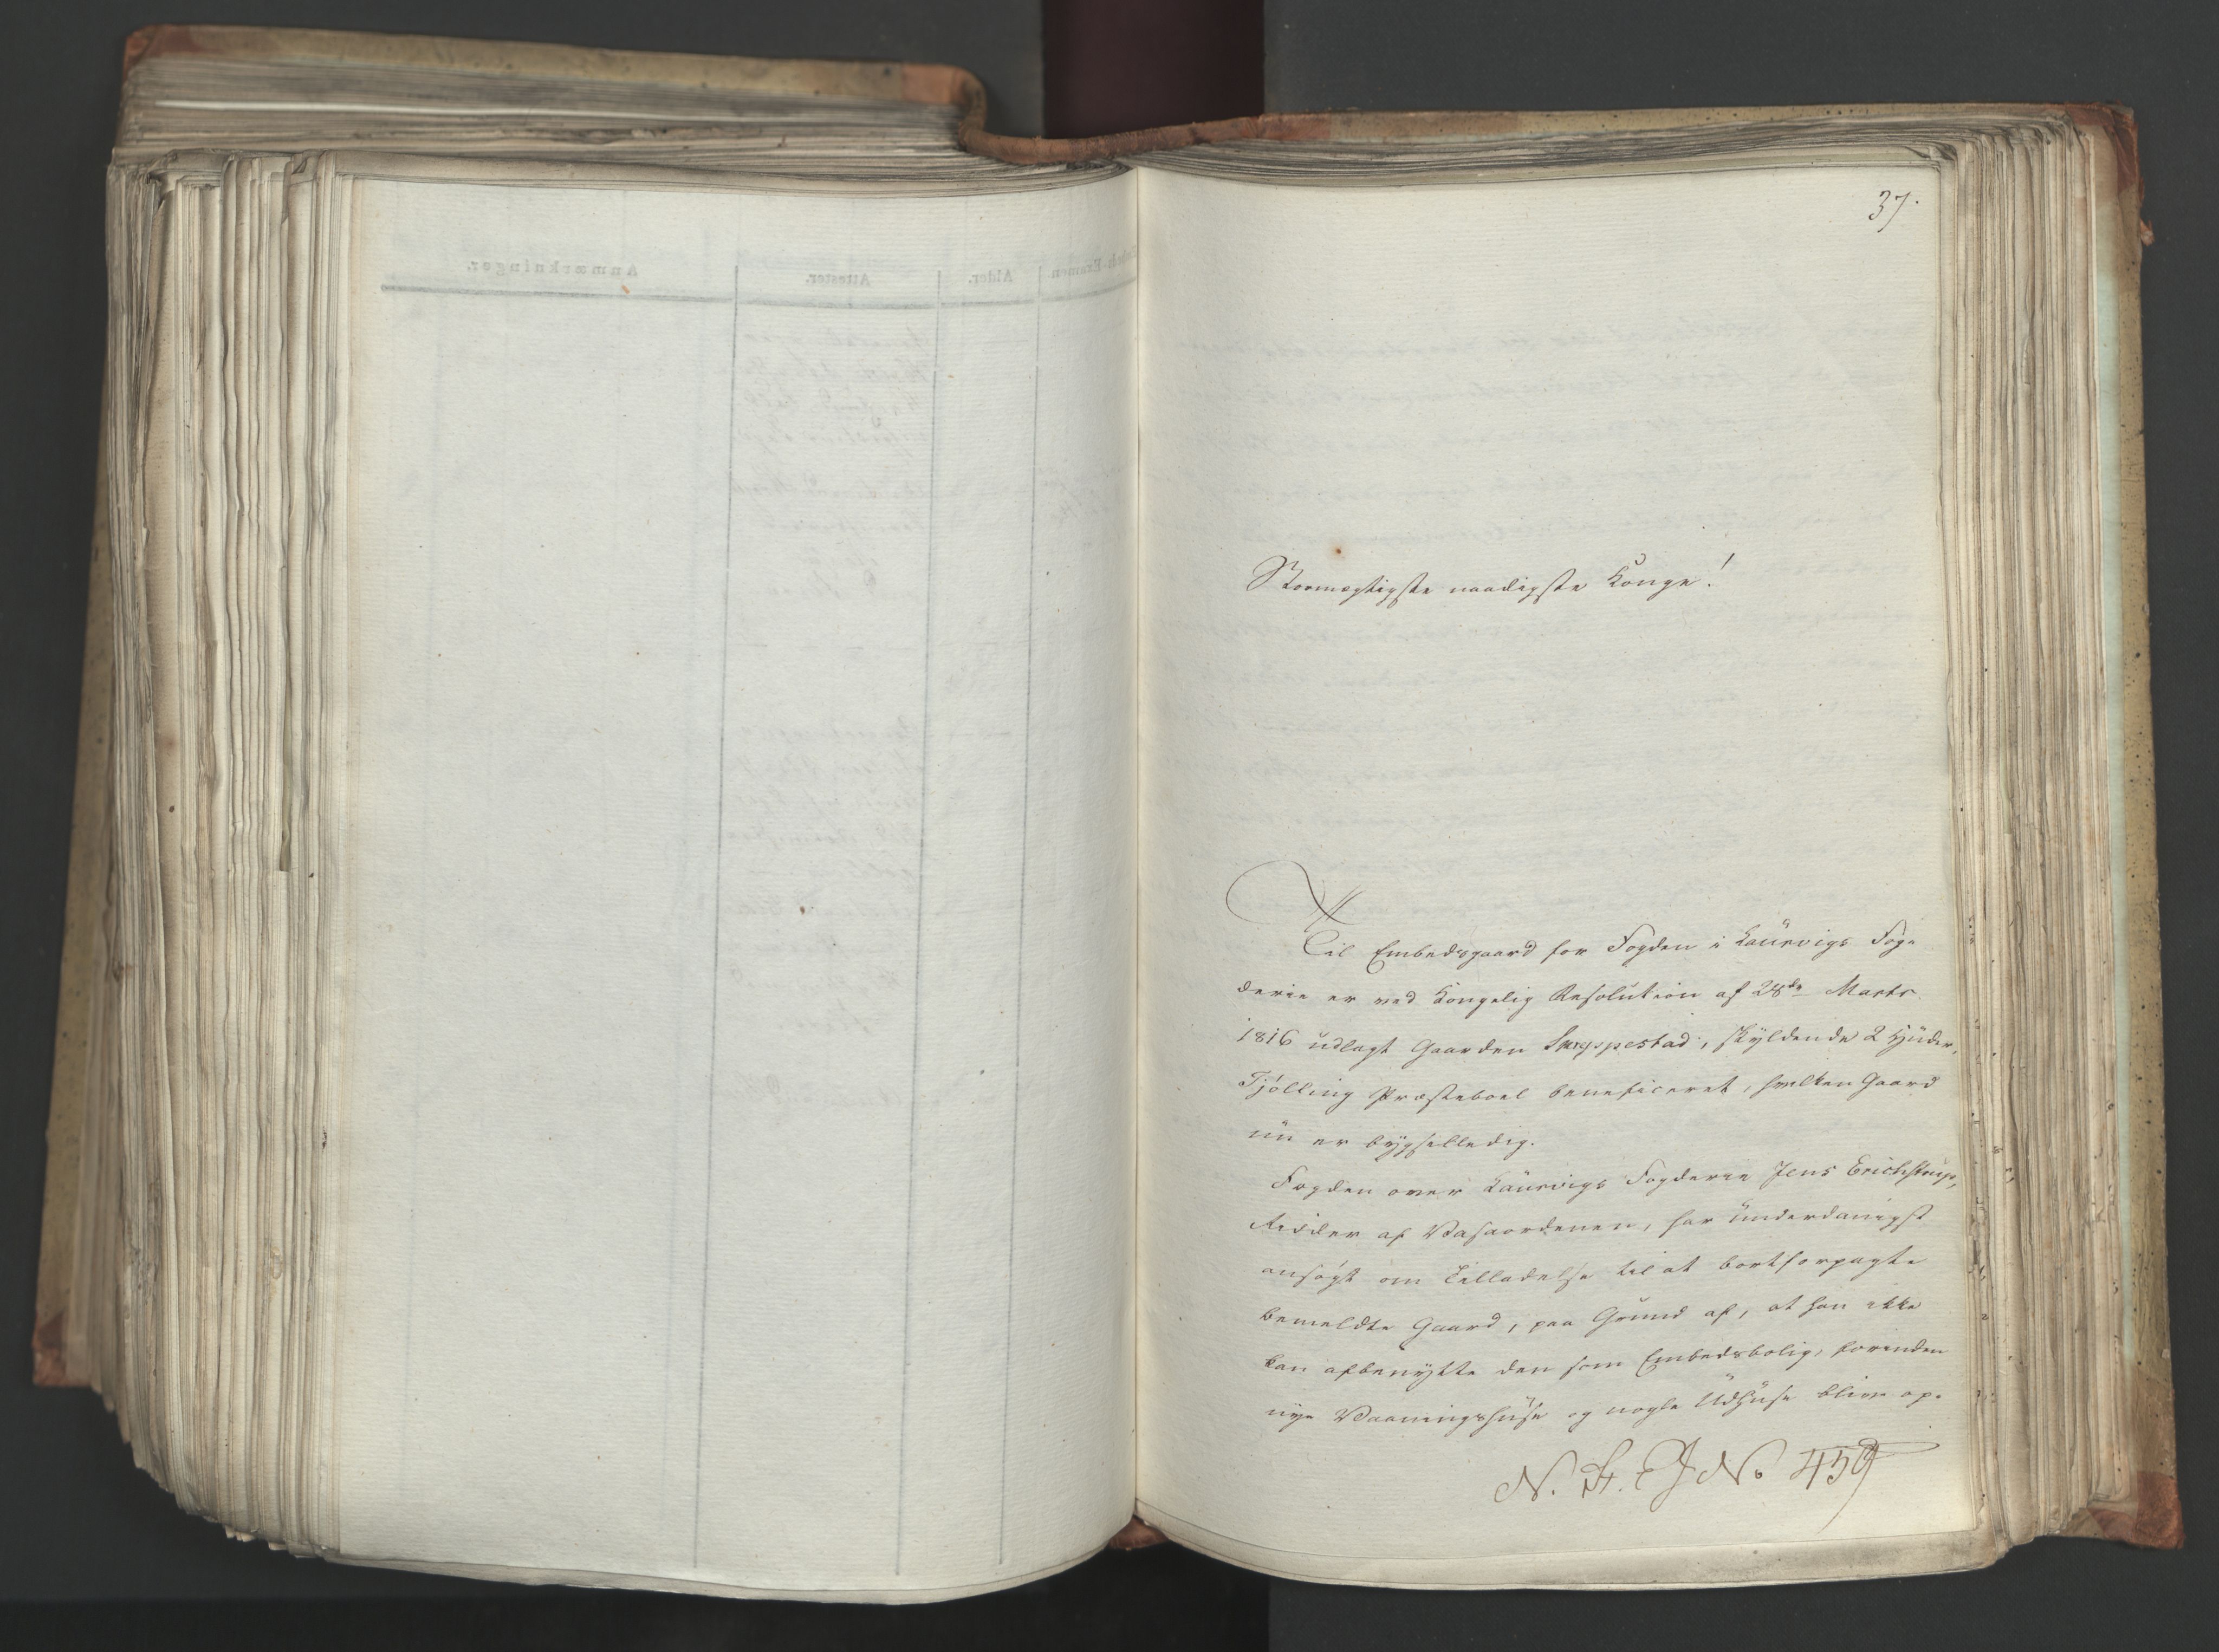 37.
Stormægtigste naadigste Konge!
Til Embedsgaard for Fogden i Laurvigs Fog-
derie er ved Kongelig Resolution af 28de Marts
1816 udlagt Gaarden Skreppestad, skyldende 2 Huder,
Tjölling Præsteboel beneficeret, hvilken Gaard
nu er bygselledig.
Fogden over Laurvigs Fogderie Jens Erichstrup,
Ridder af Vasaordenen, har underdanigst
ansögt om Tilladelse til at bortforpagte
bemeldte Gaard, paa Grund af, at han ikke
kan afbenytte den som Embedsbolig, forinden
nye Vaaningshuse og nogle Udhuse blive op-
N. No 459
Anmærkninger.
Attester.
Alder.
Examen